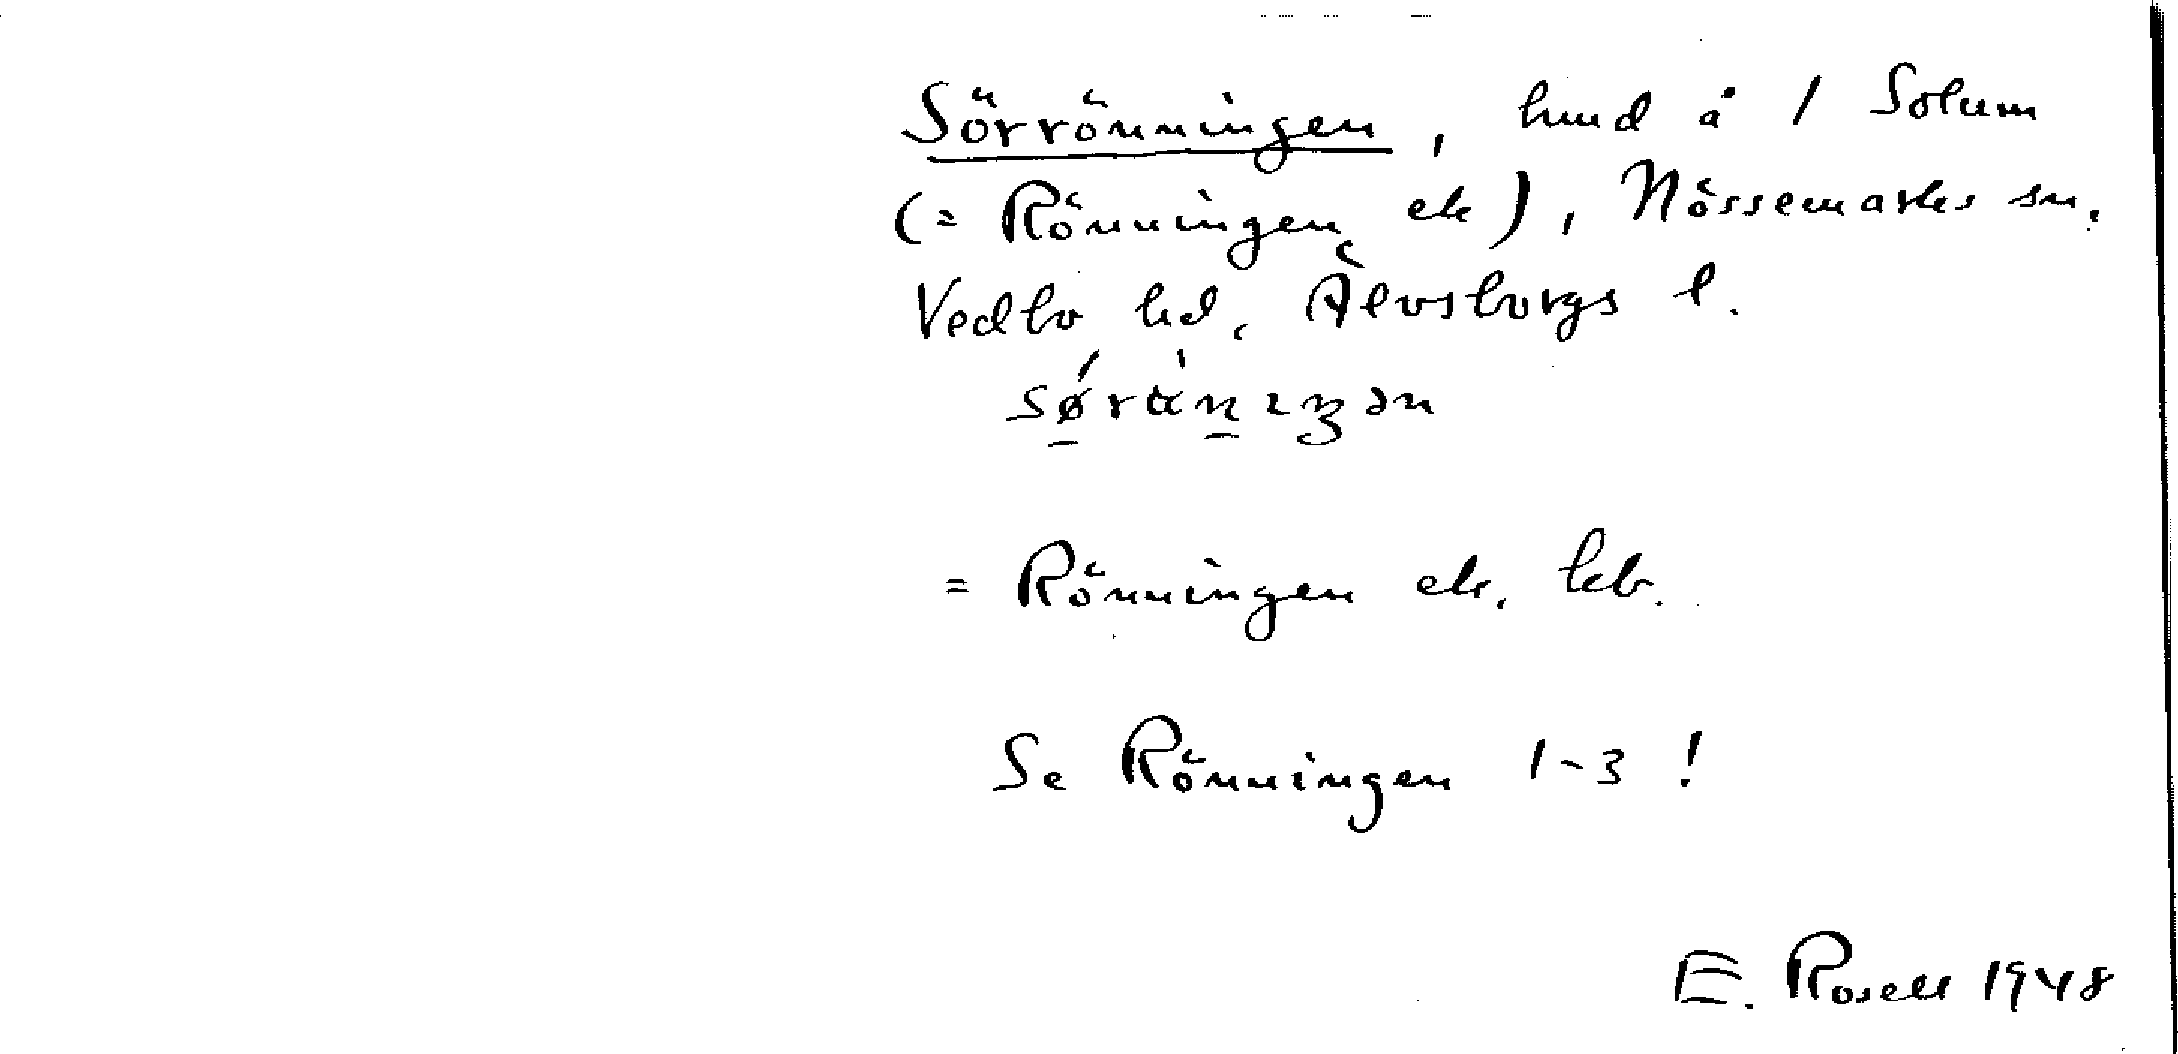 Sörrönningen, hmd å 1 Solum
(= Rönningen ek), Nössemarks sn.
Vedbo hd, Älvsborgs l.
= Rönningen ek. kb.
Se Rönningen 1-3 !
E. Rosell 1948